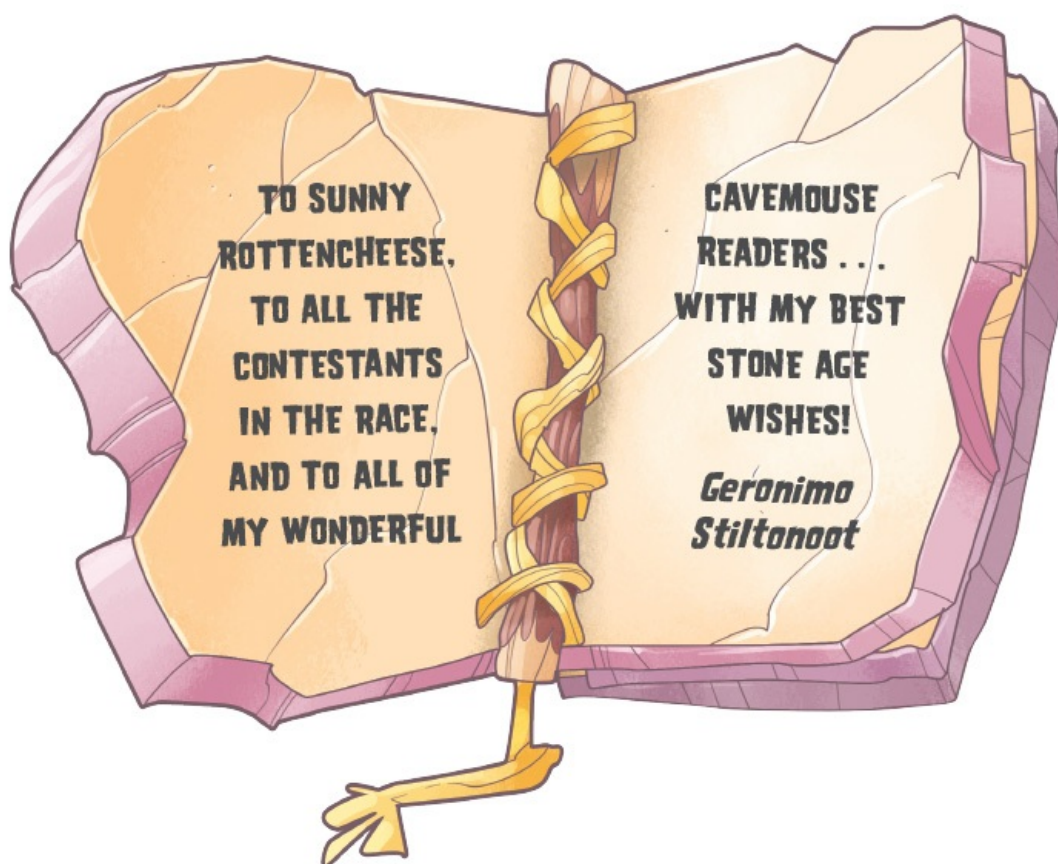 TO SUNNY
ROTTENCHEESE,
TO ALL THE
CONTESTANTS
IN THE RACE,
AND TO ALL OF
MY WONDERFUL
CAVEMOUSE
READERS . . .
WITH MY BEST
STONE AGE
WISHES!
Geronimo
Stiltonoot